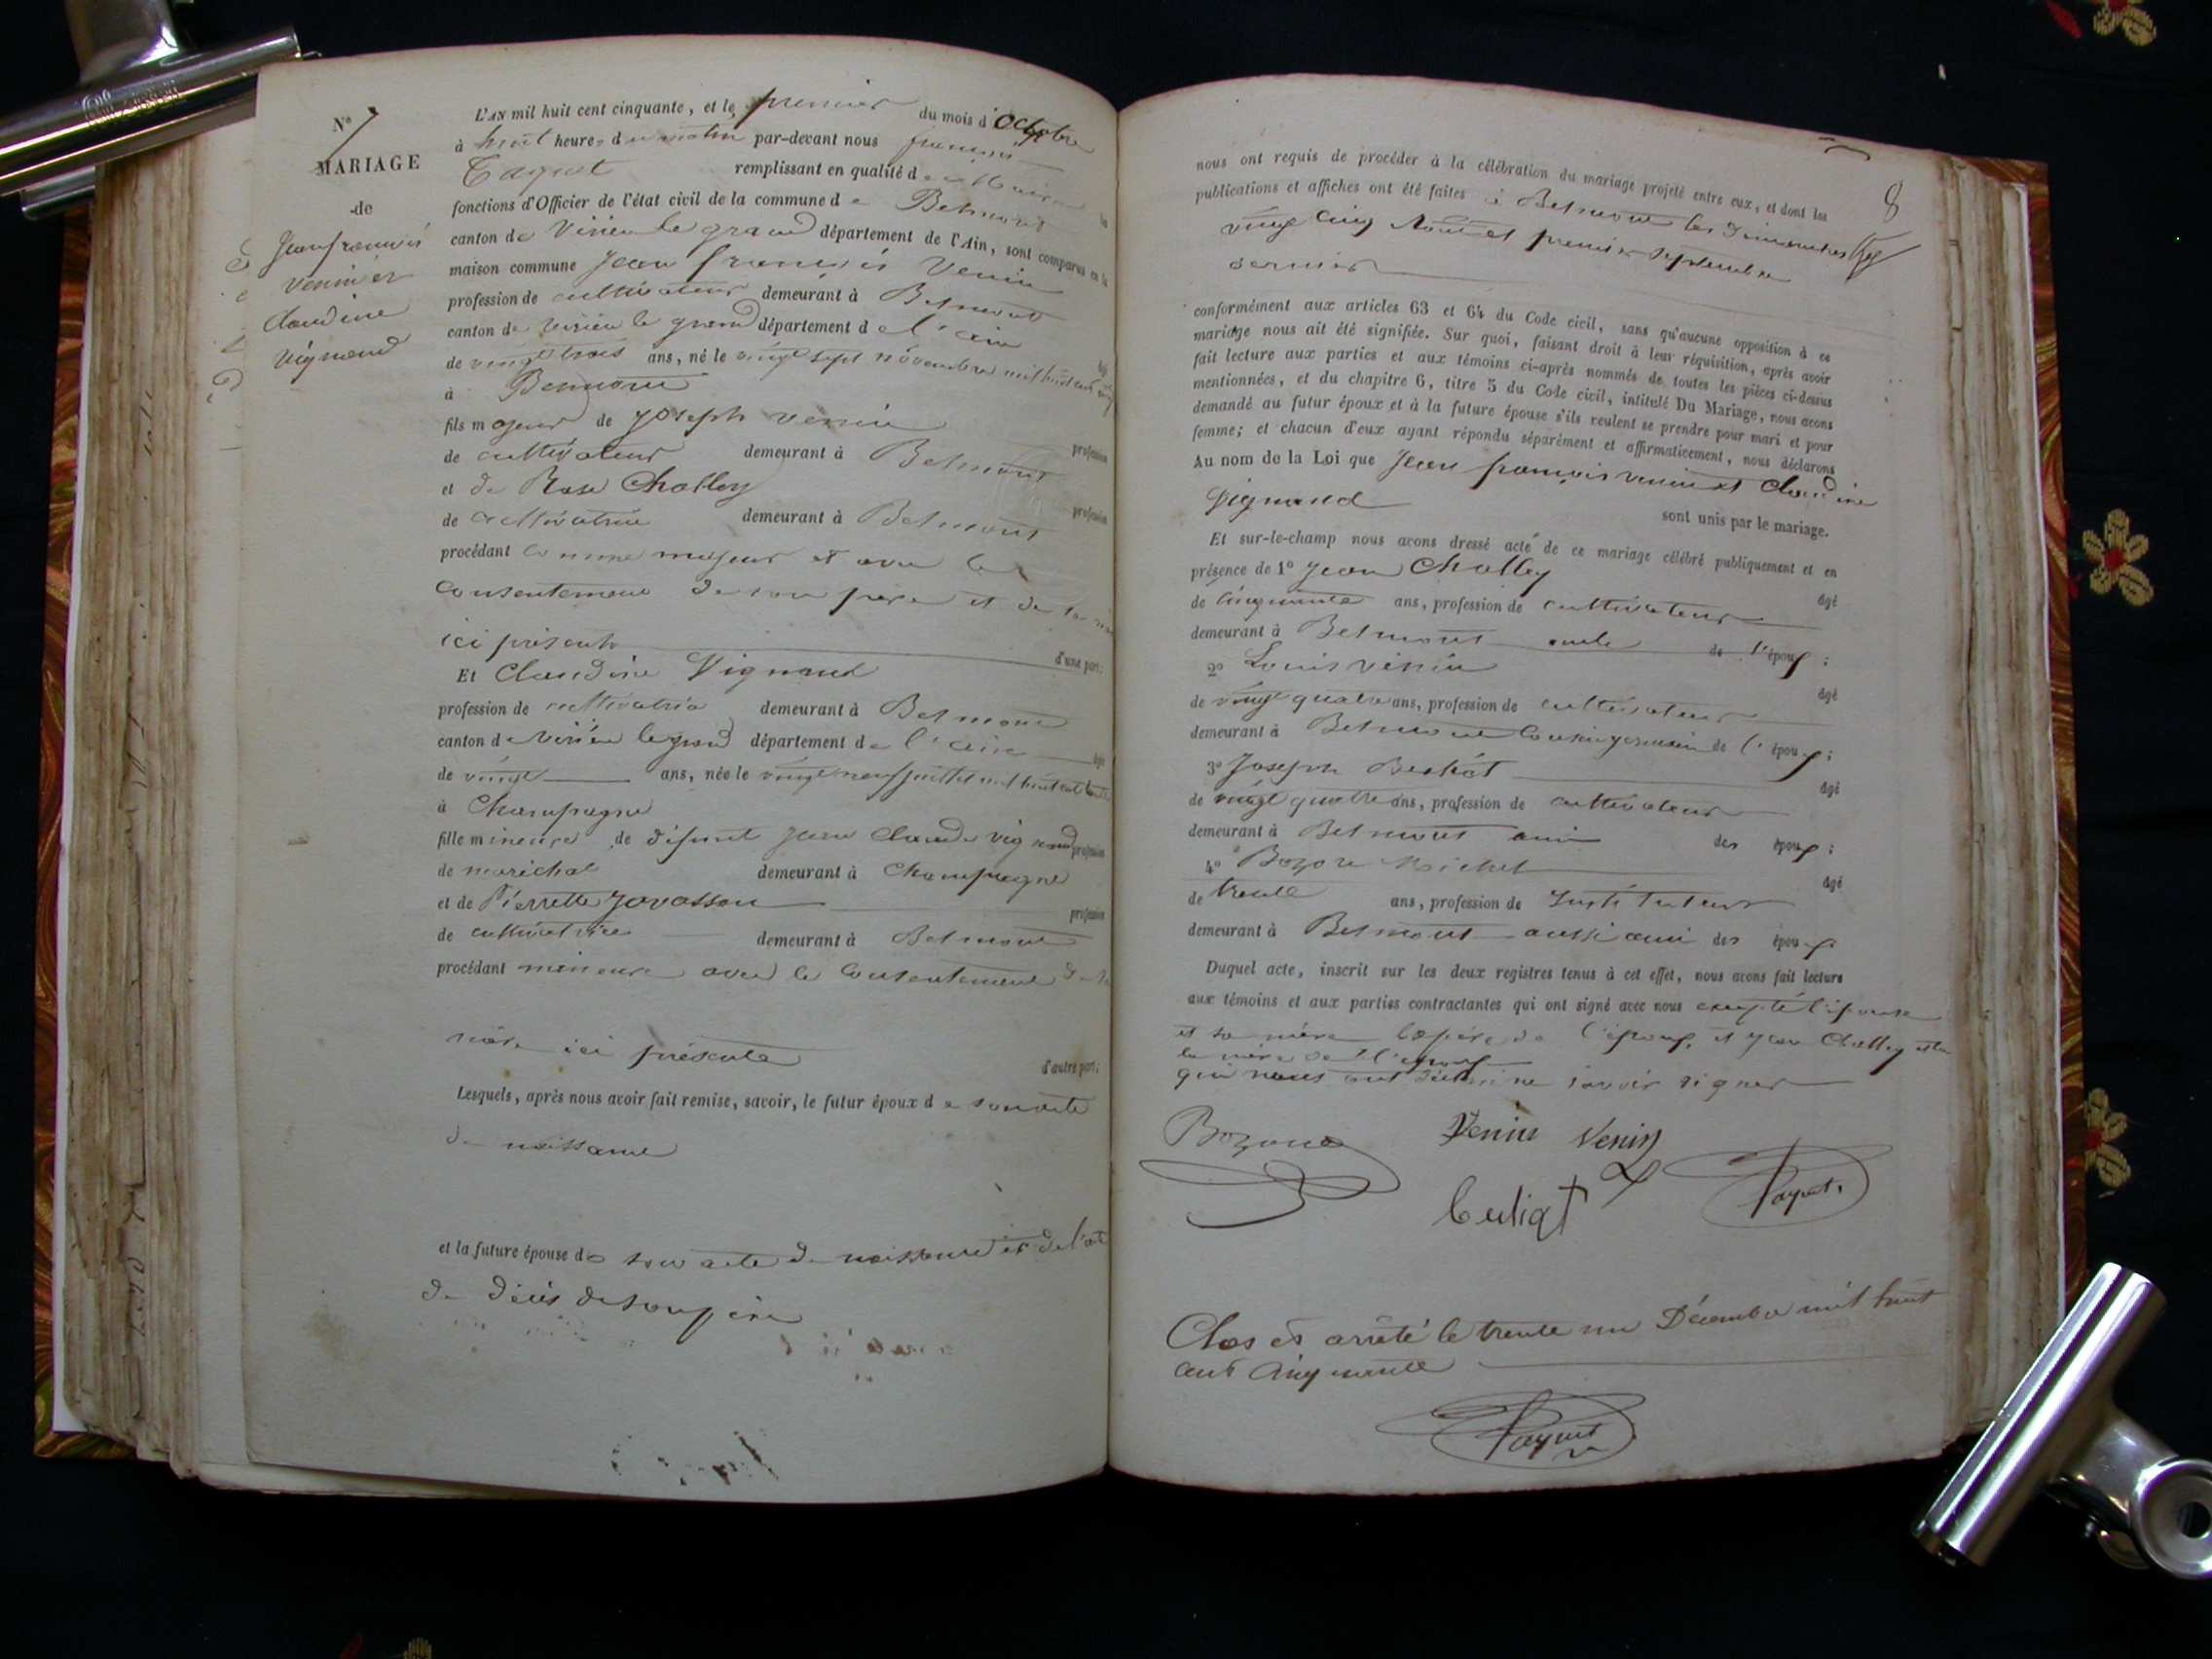 N° 7
MARIAGE
de
Jean françois
Venin et
Claudine
Vignand
L'AN mil huit cent cinquante, et le premier du mois d'octobre
à huit heures du matin par-devant nous françois
Payuet remplissant en qualité de Maire les
fonctions d'Officier de l'état civil de la commune de Belmont
canton de Virieu le grand département de l'Ain, sont comparus en la
maison commune Jean françois Venin
profession de cultivateur demeurant à Belmont
canton de virieu le grand département de l'ain
âgé
de vingt trois ans, né le vingt sept novembre mil huit cent
à Belmont
fils majeur de Joseph venin
profession
de cultivateur demeurant à Belmont
et de Rose Challey
profession
de cultivatrice demeurant à Belmont
procédant comme majeur et avec le
consentement de son père et de sa
ici présents d'une part;
Et Claudine Vignand
profession de cultivatrice demeurant à Belmont
canton de virieu le grand département de l'ain
âgée
de vingt ans, née le vingt neuf juillet mil huit cent trente
à Champagne
fille mineure de défunt Jean Claude vignand profession
de maréchal demeurant à Champagne
et de Pierrette Javasson
profession
de cultivatrice demeurant à Belmont
procédant mineure avec le consentement de sa
mère ici présente
d'autre part;
Lesquels, après nous avoir fait remise, savoir, le futur époux de son acte
de naissance
et la future épouse de son acte de naissance et de l'acte
de décès de son père
8
nous ont requis de procéder à la célébration du mariage projeté entre eux, et dont les
publications et affiches ont été faites à Belmont les dimanches
vingt cinq Aout et premier septembre
dernier
conformément aux articles 63 et 64 du Code civil, sans qu'aucune opposition à ce
mariage nous ait été signifiée. Sur quoi, faisant droit à leur réquisition, après avoir
fait lecture aux parties et aux témoins ci-après nommés de toutes les pièces ci-dessus
mentionnées, et du chapitre 6, titre 5 du Code civil, intitulé Du Mariage, nous avons
demandé au futur époux et à la future épouse s'ils veulent se prendre pour mari et pour
femme; et chacun d'eux ayant répondu séparément et affirmativement, nous déclarons
Au nom de la Loi que Jean françois venin et Claudine
Vignand
sont unis par le mariage.
Et sur-le-champ nous avons dressé acte de ce mariage célébré publiquement et en
présence de 1° Jean Challey
âgé
de cinquante ans, profession de cultivateur
demeurant à Belmont oncle de l'époux;
2° Louis venin
âgé
de vingt quatre ans, profession de cultivateur
demeurant à Belmont Cousin germain de l'époux;
3° Joseph
âgé
de vingt quatre ans, profession de cultivateur
demeurant à Belmont ami des époux;
4° Bozone Michel
âgé
de trente ans, profession de Instituteur
demeurant à Belmont aussi ami des époux
Duquel acte, inscrit sur les deux registres tenus à cet effet, nous avons fait lecture
aux témoins et aux parties contractantes qui ont signé avec nous excepté l'épouse
et sa mère le père de l'époux, et Jean Challey et la
la mère de l'époux
qui nous ont déclaré ne savoir signer
Bozone Venin Venin
Payuet
Clos et arrêté le trente un Décembre mil huit
cent cinquante
Payuet